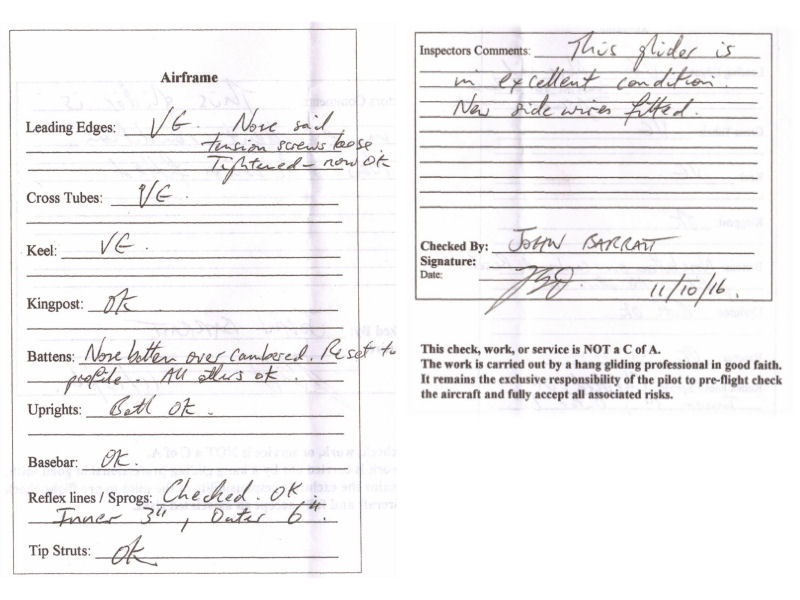 Airframe
Leading Edges: VG. Nose sail
tension screws loose.
Tightened - now OK
Cross Tubes: VG.
Keel: VG.
Kingpost: OK
Battens: Nose batten over cambered. Reset to
profile. All others ok.
Uprights: Both OK.
Basebar: OK.
Reflex lines / Sprogs: Checked. OK
Inner 3", Outer 6".
Tip Struts: OK
Inspectors Comments: This glider is
in excellent condition.
New side wires fitted.
Checked By: JOHN BARRATT
Signature:
Date: 11/10/16.
This check, work, or service is NOT a C of A.
The work is carried out by a hang gliding professional in good faith.
It remains the exclusive responsibility of the pilot to pre-flight check
the aircraft and fully accept all associated risks.